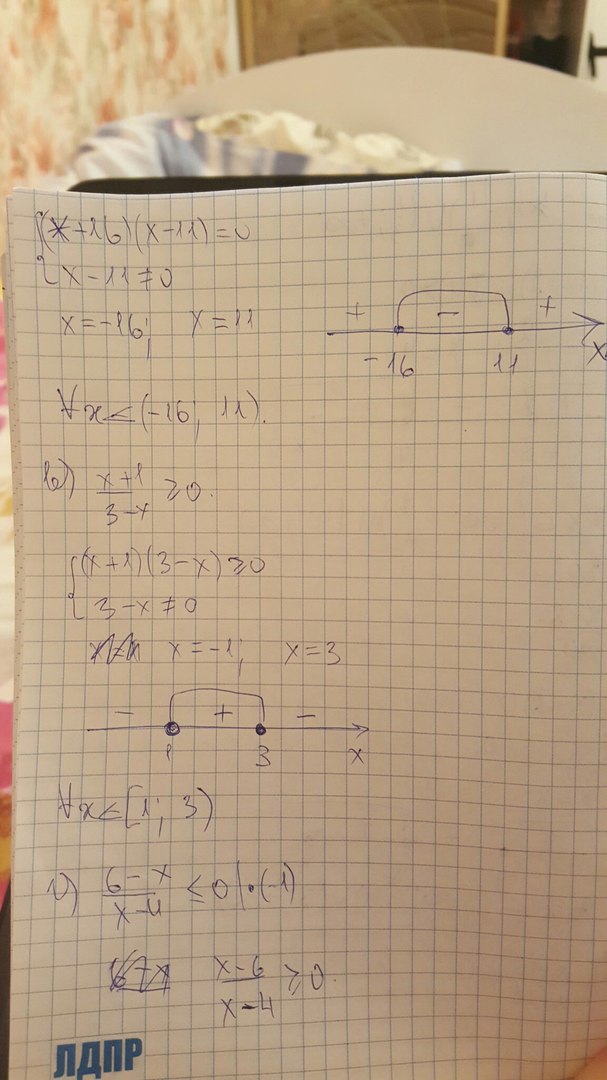 {(x+16)(x-11)=0
{x-11≠0
x=-16; x=11
+ - +
-16 11 x
∀x∈(-16; 11).
в) x+1/3-x ≥0.
{(x+1)(3-x)≥0
{3-x≠0
x=-1; x=3
- + -
1 3 x
∀x∈[1; 3)
г) 6-x/x-4 ≤0 |·(-1)
x-6/x-4 ≥0.
ЛДПР